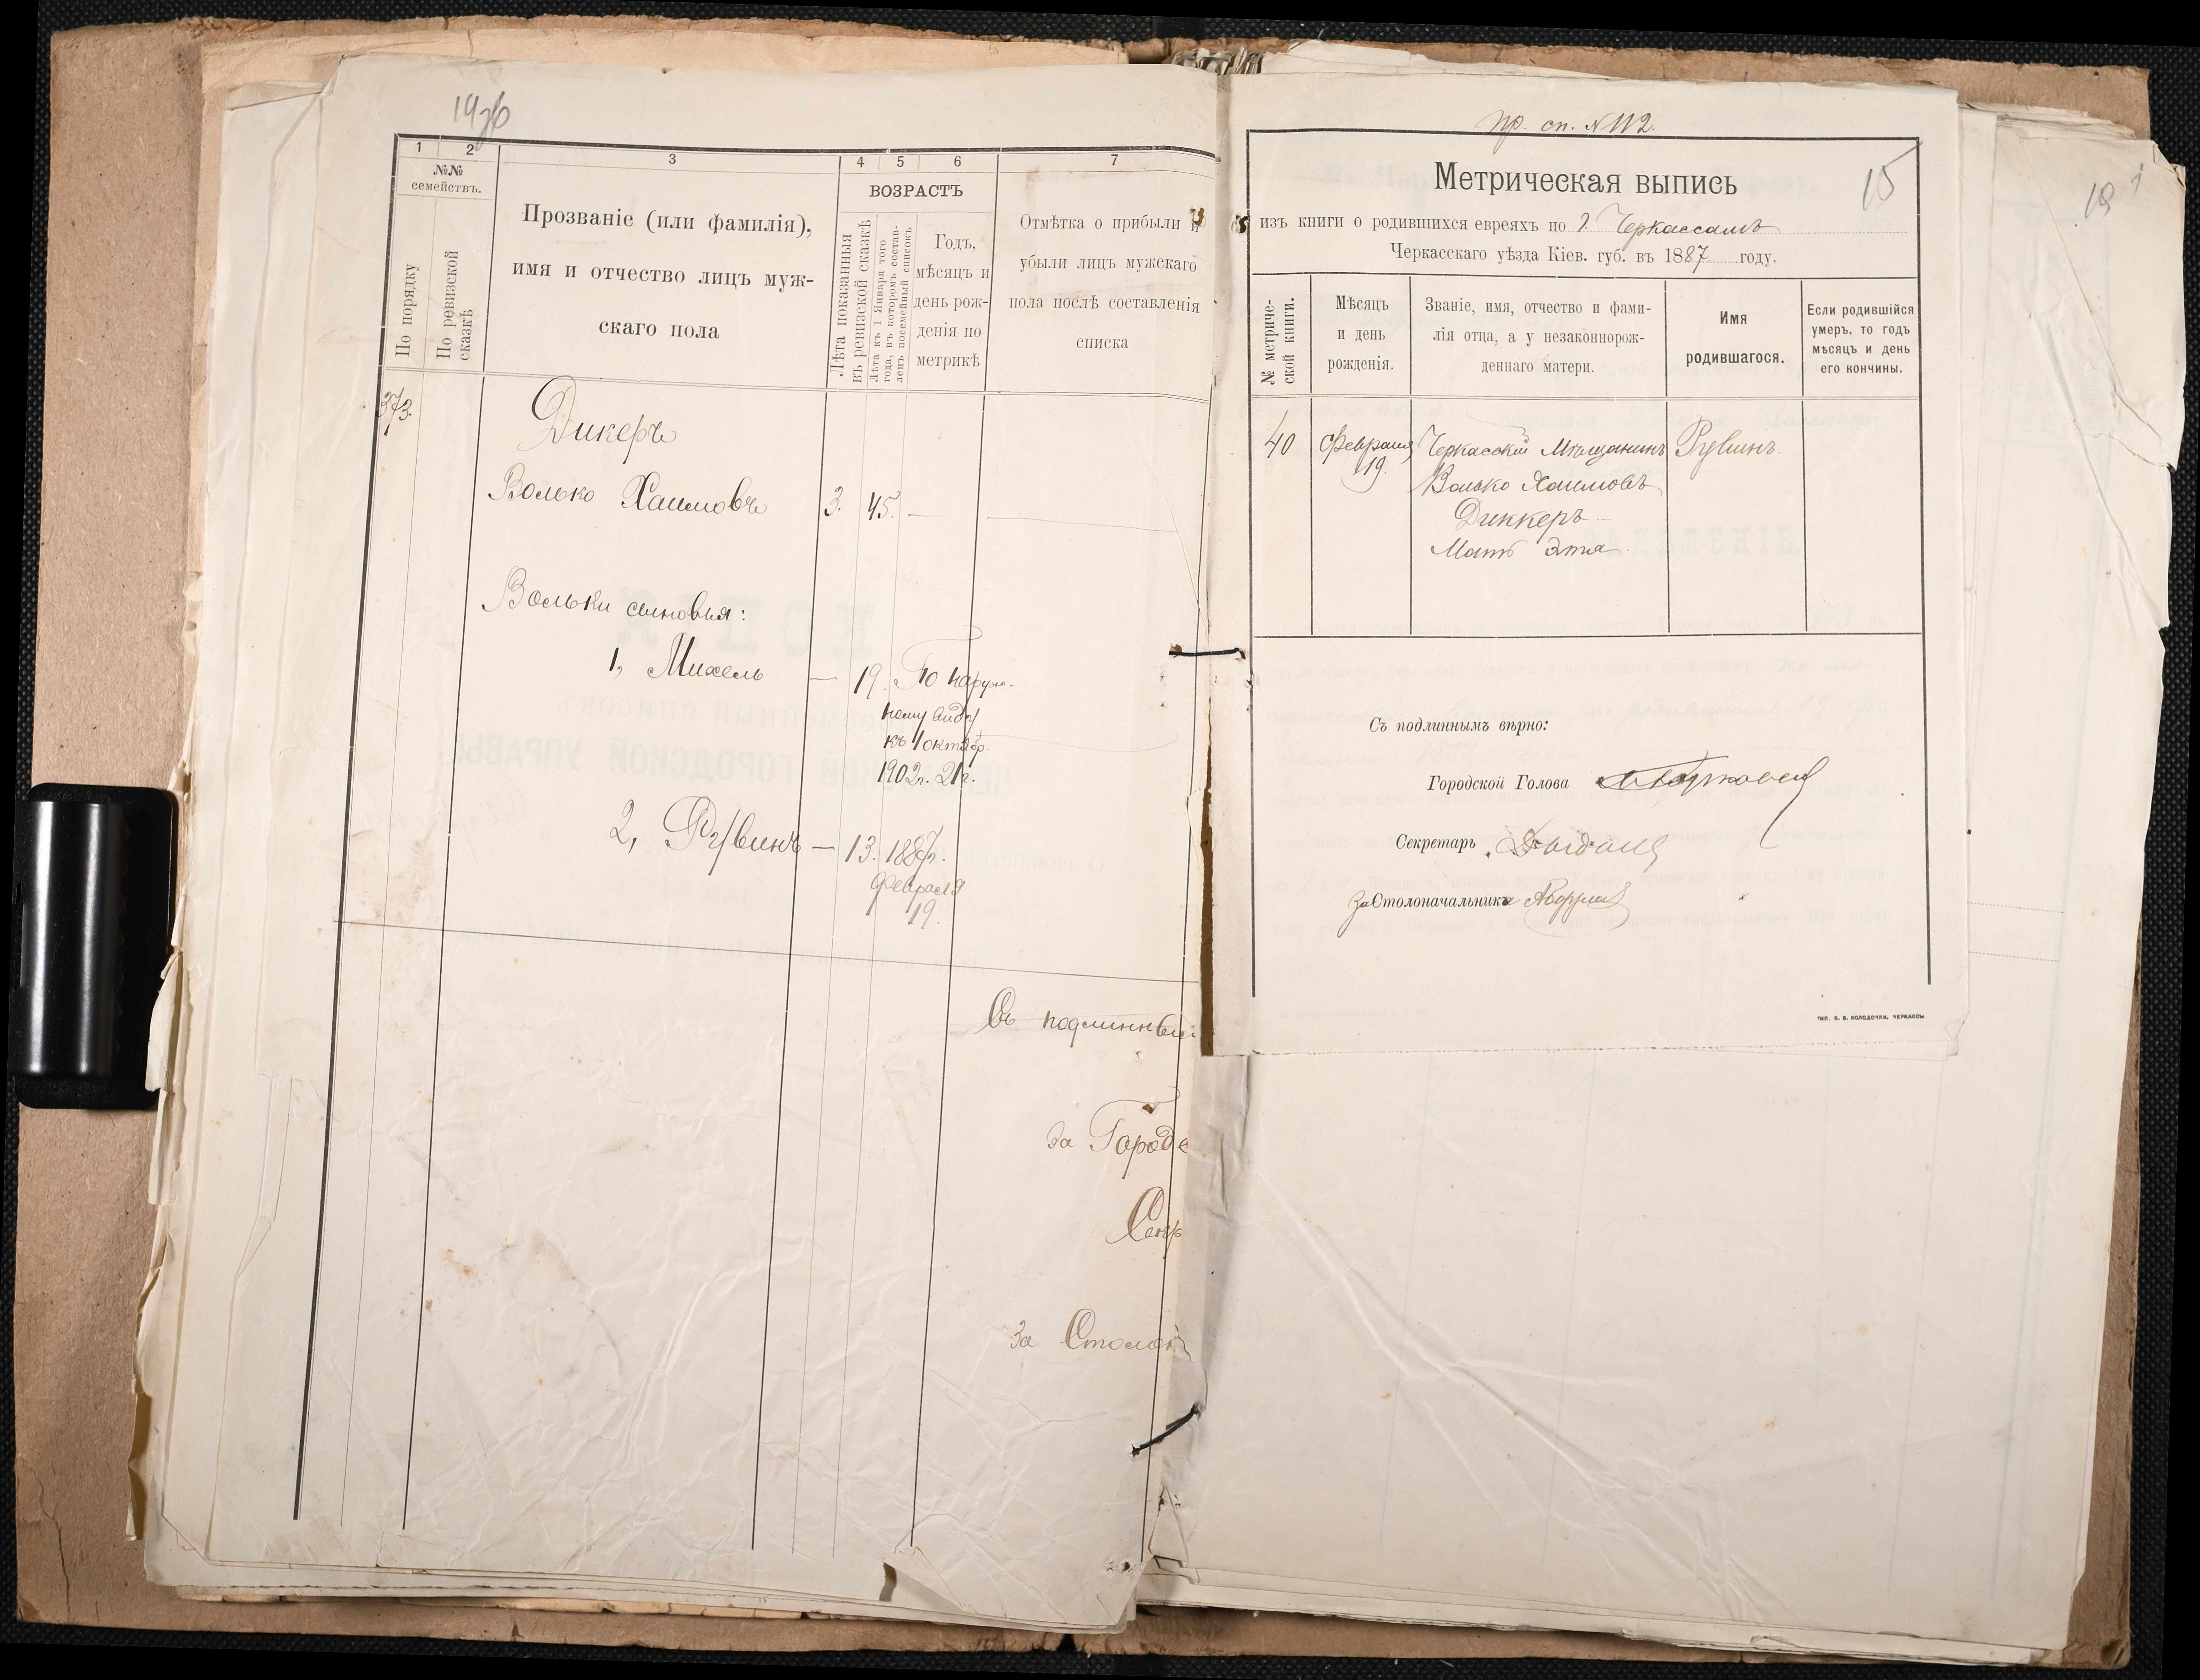 19об
1 2 3 4 5 6 7
№№
семействъ.
По порядку
По ревизской
сказкѣ
Прозваніе (или фамилія),
имя и отчество лицъ муж-
скаго пола
ВОЗРАСТЪ
Лѣта показанныя
въ ревизской сказкѣ
Лѣта къ 1 Января того
года, въ которомъ состав-
ленъ посемейный списокъ
Годъ,
мѣсяцъ и
день рож-
денія по
метрикѣ
Отмѣтка о прибыли и
убыли лицъ мужскаго
пола послѣ составленія
списка
373.
Дикеръ
Волько Хаимовъ 3. 45. —
Вольки сыновья:
1, Михель — 19. По наруж-
ному виду
къ 1 октябр.
1902г. 21г.
2, Рувинъ — 13. 1887г.
февраля
19.
Съ подлиннымъ
За Городс
Секр
За Столон
Пр. сп. № 112.
15
Метрическая выпись
изъ книги о родившихся евреяхъ по г. Черкассамъ
Черкасскаго уѣзда Кіев. губ. въ 1887 году.
№ метриче-
ской книги.
Мѣсяцъ
и день
рожденія.
Званіе, имя, отчество и фами-
лія отца, а у незаконнорож-
деннаго матери.
Имя
родившагося.
Если родившійся
умеръ, то годъ
мѣсяцъ и день
его кончины.
40 Февраля Черкасскій Мѣщанинъ Рувинъ.
19. Волько Хаимовъ
Диккеръ
Мать Эта
Съ подлиннымъ вѣрно:
Городской Голова
Секретарь
За Столоначальника
ТИП. В. В. КОЛОДОЧКИ, ЧЕРКАССЫ